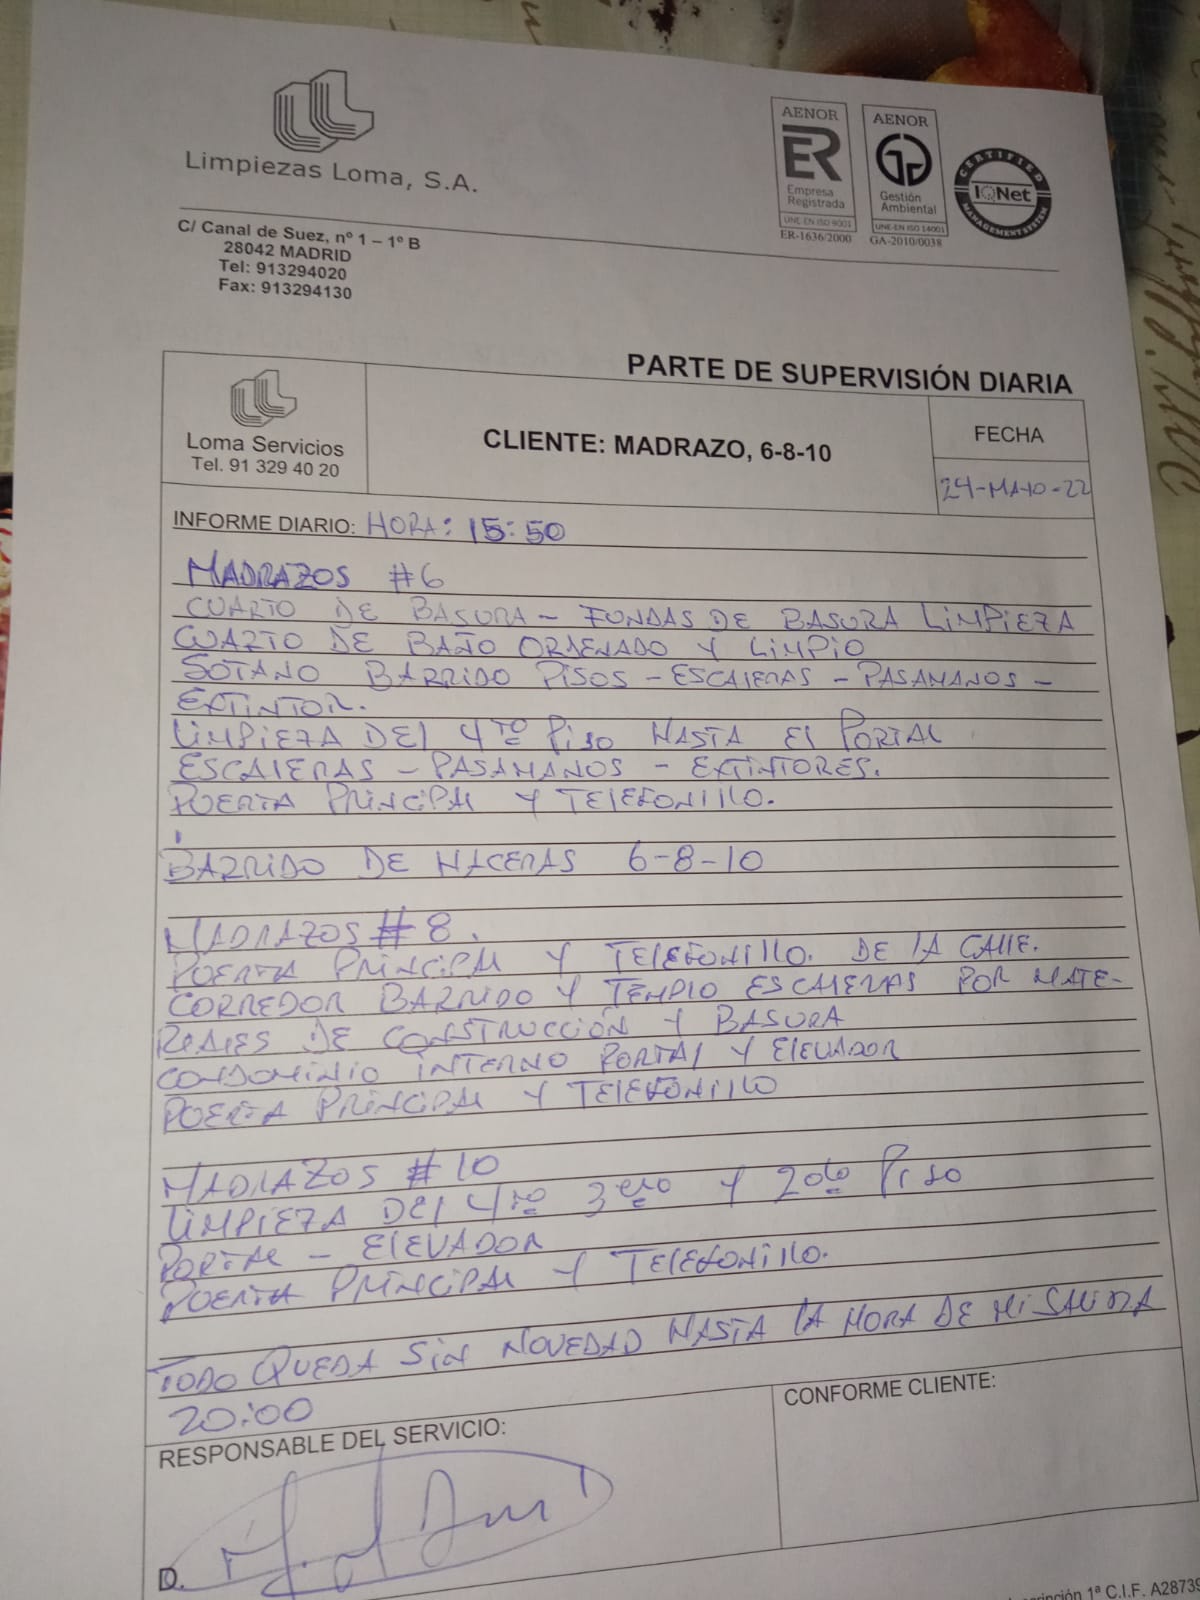 Limpiezas Loma, S.A.
C/ Canal de Suez, nº 1 – 1º B
28042 MADRID
Tel: 913294020
Fax: 913294130
AENOR
ER
Empresa
Registrada
UNE-EN ISO 9001
ER-1636/2000
AENOR
Gestión
Ambiental
UNE-EN ISO 14001
GA-2010/0038
CERTIFIED
IQNet
MANAGEMENT SYSTEM
PARTE DE SUPERVISIÓN DIARIA
Loma Servicios
Tel. 91 329 40 20
CLIENTE: MADRAZO, 6-8-10
FECHA
24-MAYO-22
INFORME DIARIO: HORA: 15:50
MADRAZOS #6
CUARTO DE BASURA – FUNDAS DE BASURA LIMPIEZA
CUARTO DE BAÑO ORDENADO Y LIMPIO
SOTANO BARRIDO PISOS – ESCALERAS – PASAMANOS –
EXTINTOR.
LIMPIEZA DEL 4TO PISO HASTA EL PORTAL
ESCALERAS – PASAMANOS – EXTINTORES.
PUERTA PRINCIPAL Y TELEFONILLO.
BARRIDO DE HACERAS 6-8-10
MADRAZOS #8.
PUERTA PRINCIPAL Y TELEFONILLO. DE LA CALLE.
CORREDOR BARRIDO Y TEMPLO ESCALERAS POR MATE-
RIALES DE CONSTRUCCIÓN Y BASURA
CONDOMINIO INTERNO PORTAL Y ELEVADOR
PUERTA PRINCIPAL Y TELEFONILLO
MADRAZOS #10
LIMPIEZA DEL 4TO 3ERO Y 2DO PISO
PORTAL – ELEVADOR
PUERTA PRINCIPAL Y TELEFONILLO.
TODO QUEDA SIN NOVEDAD HASTA LA HORA DE MI SALIDA
20:00
RESPONSABLE DEL SERVICIO:
CONFORME CLIENTE:
D.
1ª C.I.F. A28739